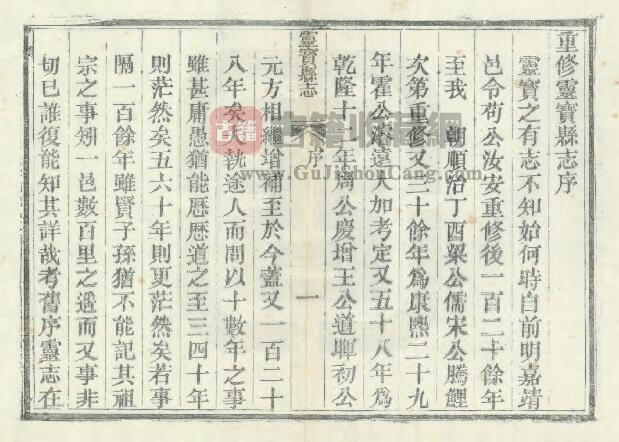 重修靈寶縣志序
靈寶之有志不知始何時自前明嘉靖
邑令苟公汝安重修後一百二十餘年
至我 朝順治丁酉梁公儒宋公騰鯉
次第重修又三十餘年為康熙二十九
年霍公濬遠大加考定又五十八年為
乾隆十二年周公慶增王公道暉初公
靈寶縣志
序
一
元方相繼增補至於今蓋又一百二十
八年矣夫執途人而問以十數年之事
雖甚庸愚猶能歷歷道之至三四十年
則茫然矣五六十年則更茫然矣若事
隔一百餘年雖賢子孫猶不能記其祖
宗之事矧一邑數百里之遙而又事非
切已誰復能知其詳哉考舊序靈志在
古籍
古籍收藏網
www.GuJiShouCang.com